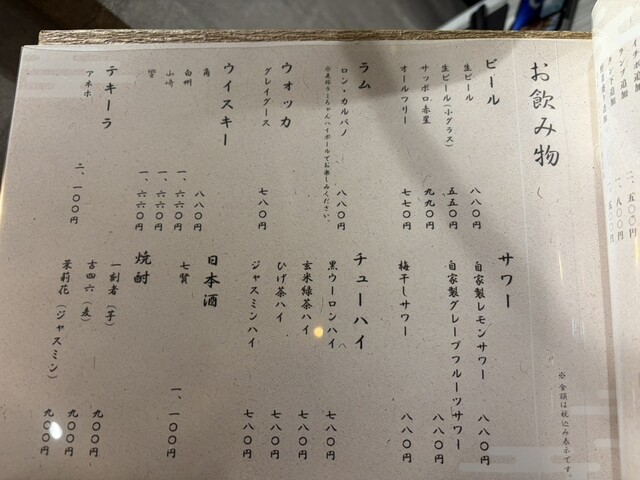 お飲み物
※ 金額は税込み表示です。
ビール
生ビール 八八〇円
生ビール(小グラス) 五五〇円
サッポロ赤星 九九〇円
オールフリー 七七〇円
ラム
ロン・カルバノ 八八〇円
ハイボールでお楽しみください。
ウォッカ
グレイグース 七八〇円
ウイスキー
角 八八〇円
白州 一、六六〇円
山崎 一、六六〇円
響 一、六六〇円
テキーラ
アネホ 二、一〇〇円
サワー
自家製レモンサワー 八八〇円
自家製グレープフルーツサワー 八八〇円
梅干しサワー 八八〇円
チューハイ
黒ウーロンハイ 七八〇円
玄米緑茶ハイ 七八〇円
ひげ茶ハイ 七八〇円
ジャスミンハイ 七八〇円
日本酒
七賢 一、一〇〇円
焼酎
一刻者(芋) 九〇〇円
吉四六(麦) 九〇〇円
茉莉花(ジャスミン) 九〇〇円
追加
ランプ追加
下追加
二、五〇〇円
一、八〇〇円